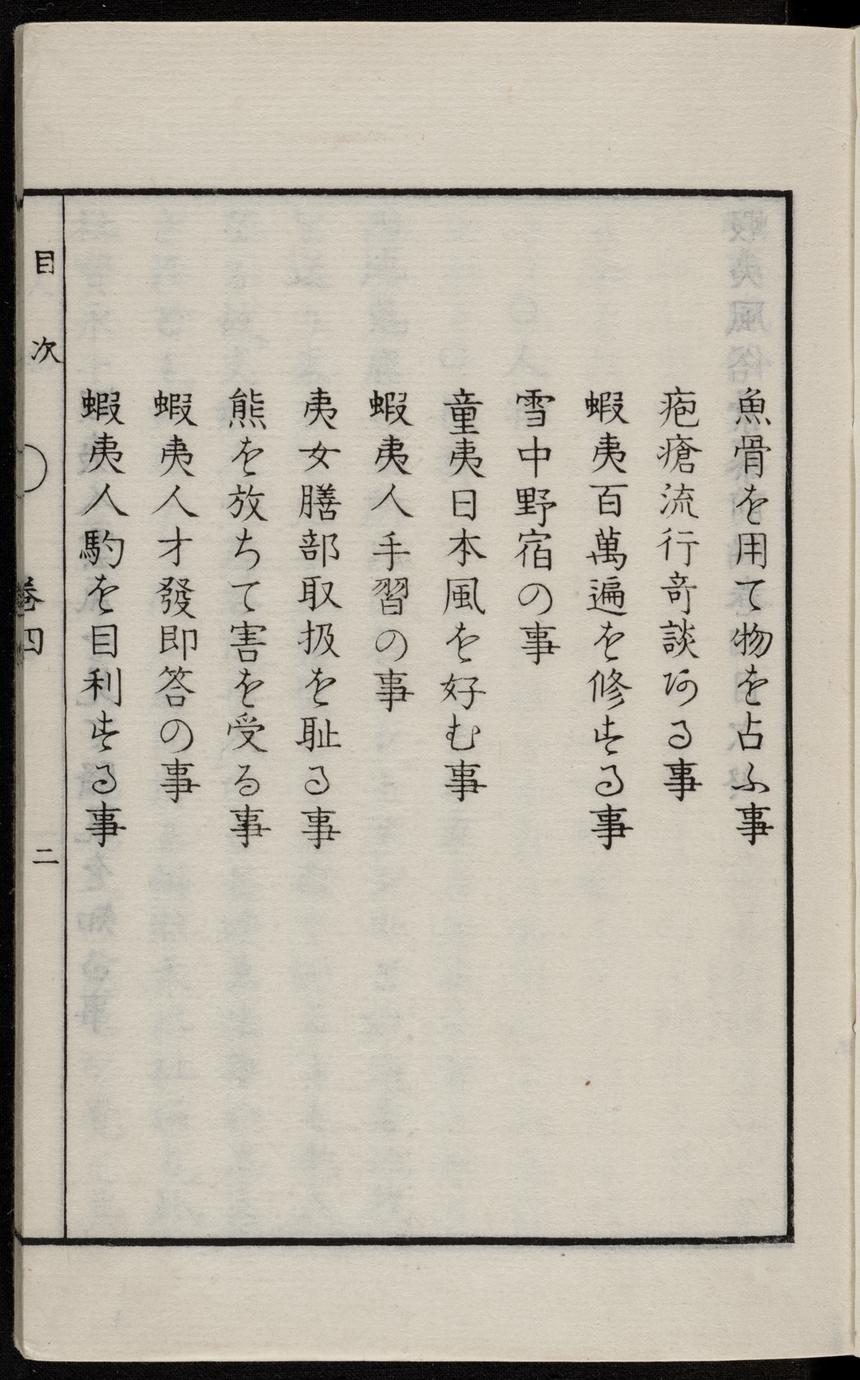 魚骨を用て物を占ふ事
疱瘡流行奇談ある事
蝦夷百萬遍を修する事
雪中野宿の事
童夷日本風を好む事
蝦夷人手習の事
夷女膳部取扱を耻る事
熊を放ちて害を受る事
蝦夷人才發即答の事
蝦夷人馰を目利する事
目次
卷四
二